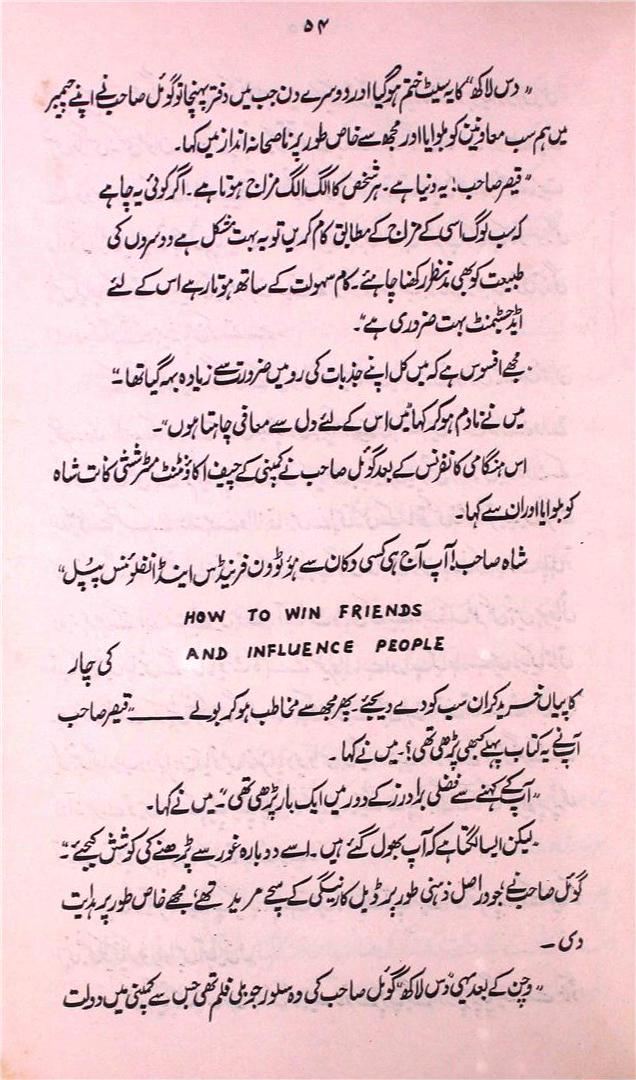 ۵۴
”دس لاکھ“ کا یہ سیٹ ختم ہو گیا اور دوسرے دن جب میں دفتر پہنچا تو گوئل صاحب نے اپنے چیمبر
میں ہم سب معاونین کو بلوایا اور مجھ سے خاص طور پر ناصحانہ انداز میں کہا۔
”قیصر صاحب! یہ دنیا ہے۔ ہر شخص کا الگ الگ مزاج ہوتا ہے۔ اگر کوئی یہ چاہے
کہ سب لوگ اسی کے مزاج کے مطابق کام کریں تو یہ بہت مشکل ہے دوسروں کی
طبیعت کو بھی مدنظر رکھنا چاہئے۔ کام سہولت کے ساتھ ہوتا رہے اس کے لئے
ایڈجسٹمنٹ بہت ضروری ہے“۔
”مجھے افسوس ہے کہ میں کل اپنے جذبات کی رو میں ضرورت سے زیادہ بہہ گیا تھا۔“
میں نے نادم ہو کر کہا ”میں اس کے لئے دل سے معافی چاہتا ہوں“۔
اس ہنگامی کانفرنس کے بعد گوئل صاحب نے کمپنی کے چیف اکاؤنٹنٹ مسٹر ششی کانت شاہ
کو بلوایا اور ان سے کہا۔
شاہ صاحب! آپ آج ہی کسی دکان سے ہؤ ٹو ون فرینڈس اینڈ انفلوئنس پیپل“
HOW TO WIN FRIENDS
AND INFLUENCE PEOPLE کی چار
کاپیاں خرید کر ان سب کو دے دیجئے۔ پھر مجھ سے مخاطب ہو کر بولے ——— ”قیصر صاحب
آپ نے یہ کتاب پہلے کبھی پڑھی تھی؟“ میں نے کہا۔
”آپ کے کہنے سے فضلی برادرز کے دور میں ایک بار پڑھی تھی“۔ میں نے کہا۔
”لیکن ایسا لگتا ہے کہ آپ بھول گئے ہیں۔ اسے دوبارہ غور سے پڑھنے کی کوشش کیجئے“۔
گوئل صاحب نے، جو دراصل ذہنی طور پر ڈیل کارنیگی کے سچے مرید تھے، مجھے خاص طور پر ہدایت
دی۔
”وچن کے بعد یہی ”دس لاکھ“ گوئل صاحب کی وہ سلور جوبلی فلم تھی جس سے کمپنی میں دولت